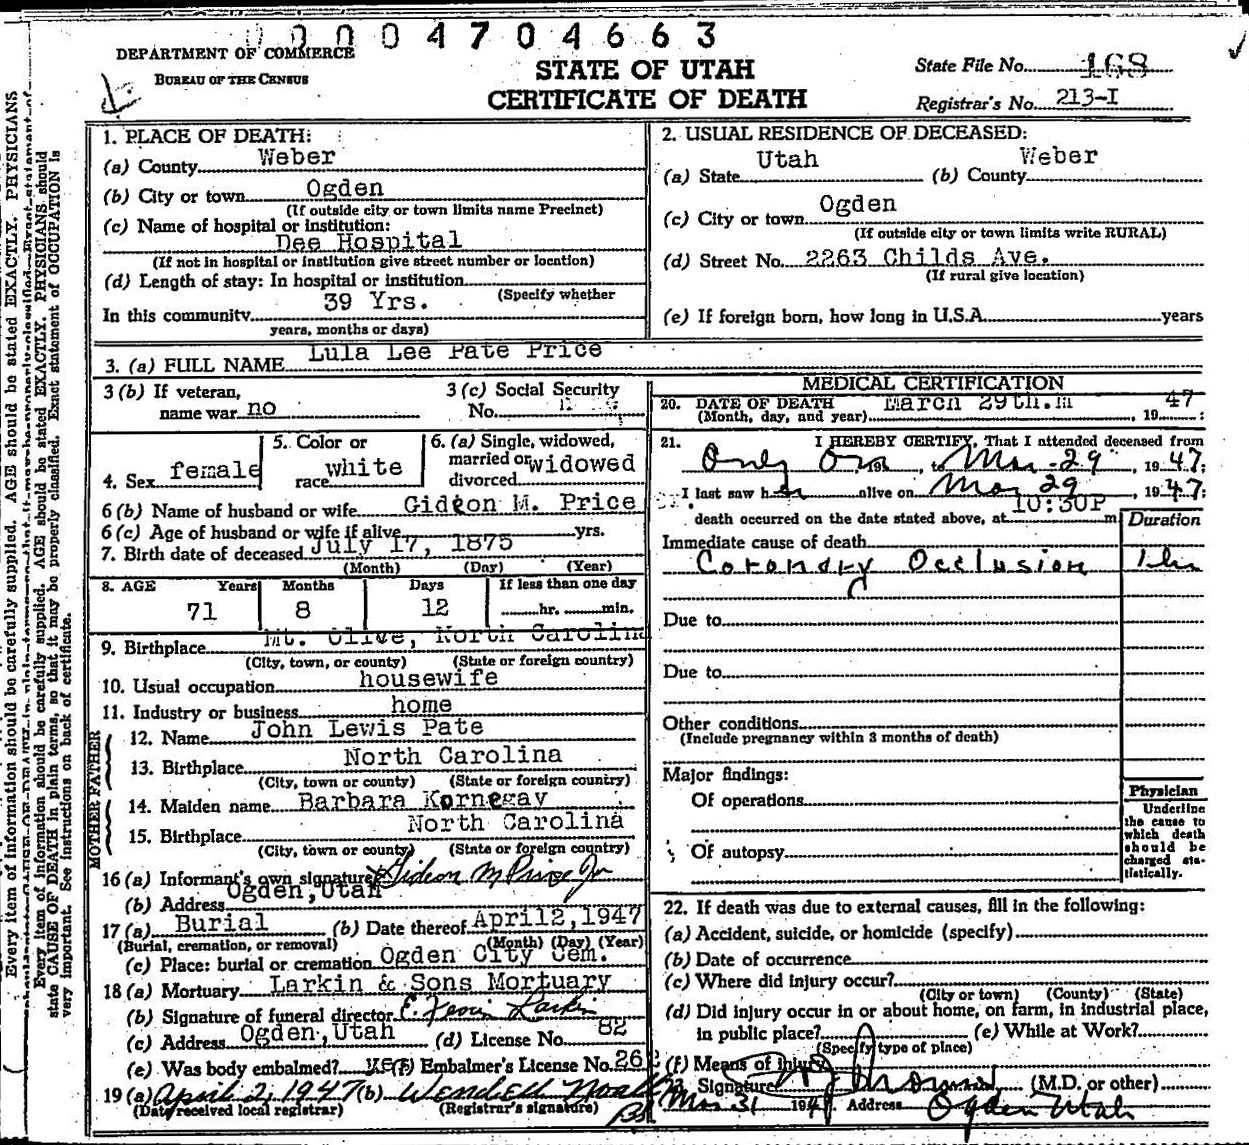 0004704663
DEPARTMENT OF COMMERCE
BUREAU OF THE CENSUS
STATE OF UTAH
CERTIFICATE OF DEATH
State File No. 168
Registrar's No. 213-I
1. PLACE OF DEATH:
(a) County Weber
(b) City or town Ogden
(If outside city or town limits name Precinct)
(c) Name of hospital or institution:
Dee Hospital
(If not in hospital or institution give street number or location)
(d) Length of stay: In hospital or institution
(Specify whether
In this community 39 Yrs.
years, months or days)
2. USUAL RESIDENCE OF DECEASED:
(a) State Utah (b) County Weber
(c) City or town Ogden
(If outside city or town limits write RURAL)
(d) Street No. 2263 Childs Ave.
(If rural give location)
(e) If foreign born, how long in U.S.A. years
3. (a) FULL NAME Lula Lee Pate Price
3 (b) If veteran,
name war no
3 (c) Social Security
No.
4. Sex female
5. Color or
race white
6. (a) Single, widowed,
married or
divorced widowed
6 (b) Name of husband or wife Gideon M. Price
6 (c) Age of husband or wife if alive yrs.
7. Birth date of deceased July 17, 1875
(Month) (Day) (Year)
8. AGE Years Months Days If less than one day
71 8 12 hr. min.
9. Birthplace Mt. Olive, North Carolina
(City, town, or county) (State or foreign country)
10. Usual occupation housewife
11. Industry or business home
FATHER
12. Name John Lewis Pate
13. Birthplace North Carolina
(City, town or county) (State or foreign country)
MOTHER
14. Maiden name Barbara Kornegay
15. Birthplace North Carolina
(City, town or county) (State or foreign country)
16 (a) Informant's own signature Gideon M Price Jr
(b) Address Ogden, Utah
17 (a) Burial (b) Date thereof April 2, 1947
(Burial, cremation, or removal) (Month) (Day) (Year)
(c) Place: burial or cremation Ogden City Cem.
18 (a) Mortuary Larkin & Sons Mortuary
(b) Signature of funeral director Larkin
(c) Address Ogden, Utah (d) License No. 82
(e) Was body embalmed? yes (f) Embalmer's License No. 26
19 (a) April 2, 1947 (b) Wendell
(Date received local registrar) (Registrar's signature)
MEDICAL CERTIFICATION
20. DATE OF DEATH March 29th. 1947
(Month, day, and year)
21. I HEREBY CERTIFY, That I attended deceased from
Only on 19, to Mar 29, 1947;
I last saw her alive on Mar 29, 1947;
death occurred on the date stated above, at 10:30P m
Duration
Immediate cause of death
Coronary Occlusion 1 hr
Due to
Due to
Other conditions
(Include pregnancy within 3 months of death)
Major findings:
Of operations
Of autopsy
Physician
Underline
the cause to
which death
should be
charged sta-
tistically.
22. If death was due to external causes, fill in the following:
(a) Accident, suicide, or homicide (specify)
(b) Date of occurrence
(c) Where did injury occur?
(City or town) (County) (State)
(d) Did injury occur in or about home, on farm, in industrial place,
in public place? (e) While at Work?
(Specify type of place)
(f) Means of injury
23. Signature (M.D. or other)
Mar 31 194 Address Ogden Utah
Every item of information should be carefully supplied. AGE should be stated EXACTLY. PHYSICIANS should
state CAUSE OF DEATH in plain terms, so that it may be properly classified. Exact statement of OCCUPATION is
very important. See instructions on back of certificate.